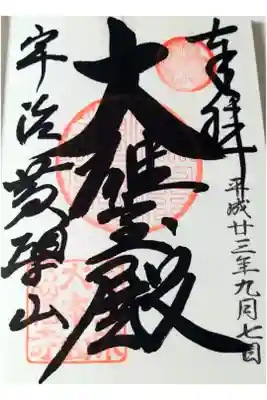 奉拝
平成廿三年九月七日
大雄宝殿
宇治黄檗山